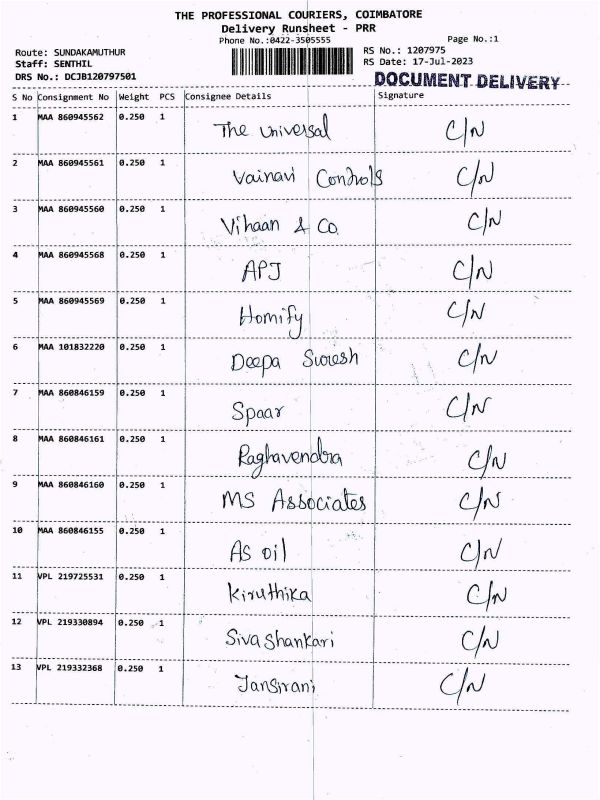 THE PROFESSIONAL COURIERS, COIMBATORE
Delivery Runsheet - PRR
Phone No.:0422-3505555 Page No.:1
Route: SUNDAKAMUTHUR RS No.: 1207975
Staff: SENTHIL RS Date: 17-Jul-2023
DRS No.: DCJB120797501 DOCUMENT DELIVERY
S No Consignment No Weight PCS Consignee Details Signature
1 MAA 860945562 0.250 1 The universal C/N
2 MAA 860945561 0.250 1 Vainavi Controls C/N
3 MAA 860945560 0.250 1 Vihaan & Co. C/N
4 MAA 860945568 0.250 1 APJ C/N
5 MAA 860945569 0.250 1 Homify C/N
6 MAA 101832220 0.250 1 Deepa Suresh C/N
7 MAA 860846159 0.250 1 Spaar C/N
8 MAA 860846161 0.250 1 Raghavendra C/N
9 MAA 860846160 0.250 1 MS Associates C/N
10 MAA 860846155 0.250 1 AS oil C/N
11 VPL 219725531 0.250 1 Kiruthika C/N
12 VPL 219330894 0.250 1 Siva Shankari C/N
13 VPL 219332368 0.250 1 Jansirani C/N